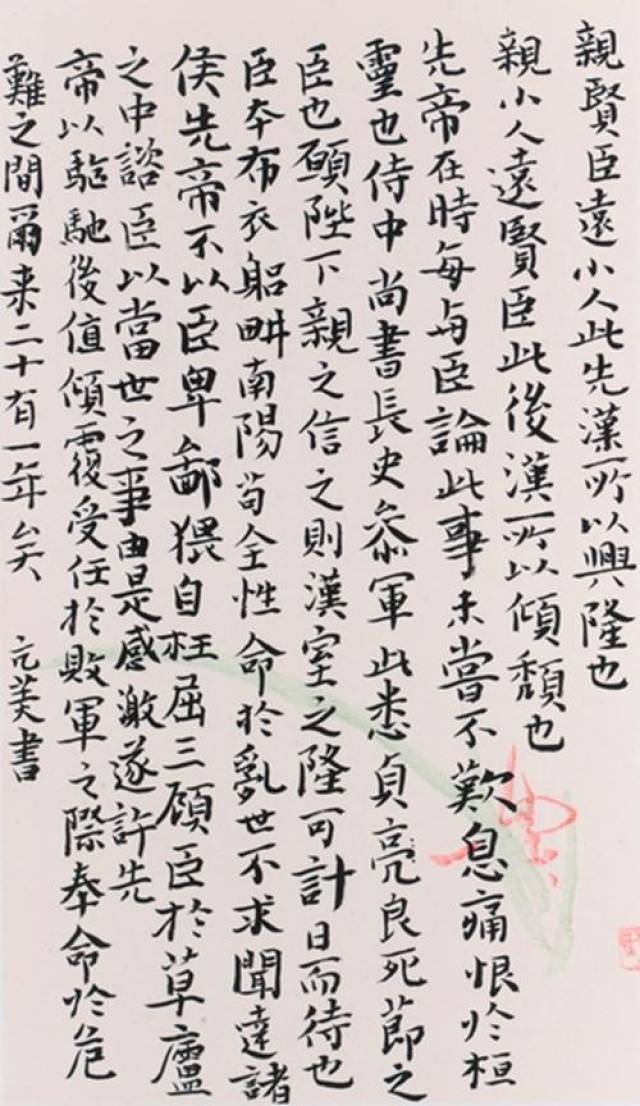 親賢臣遠小人此先漢所以興隆也
親小人遠賢臣此後漢所以傾頹也
先帝在時每与臣論此事未嘗不歎息痛恨於桓
靈也侍中尚書長史叅軍此悉貞亮良死莭之
臣也願陛下親之信之則漢室之隆可計日而待也
臣本布衣躬畊南陽苟全性命於亂世不求聞達諸
侯先帝不以臣卑鄙猥自枉屈三顧臣於草廬
之中諮臣以當世之事由是感激遂許先
帝以驅馳後值傾覆受任於敗軍之際奉命於危
難之間爾来二十有一年矣 元美書